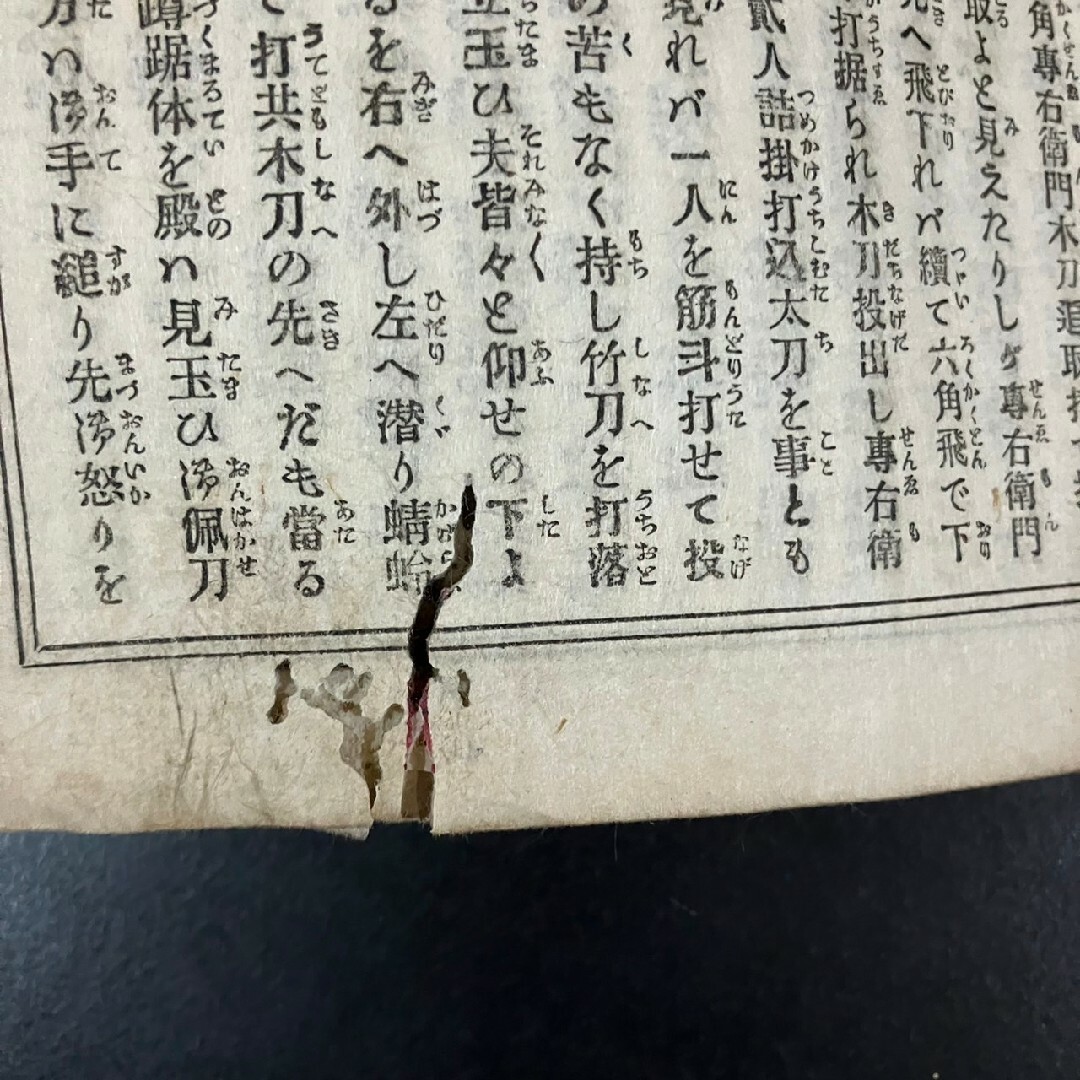 角專右衛門木刀追取
取よと見えたりしが專右衛門
へ飛下れバ續て六角飛で下
打据られ木刀投出し專右衛
貳人詰掛打込太刀を事とも
れバ一人を筋斗打せて投
の苦もなく持し竹刀を打落
玉ひ夫皆々と仰せの下よ
るを右へ外し左へ潜り蜻蛉
て打共木刀の先へだも當る
蹲踞体を殿ハ見玉ひ御佩刀
ハ御手に縋り先御怒りを